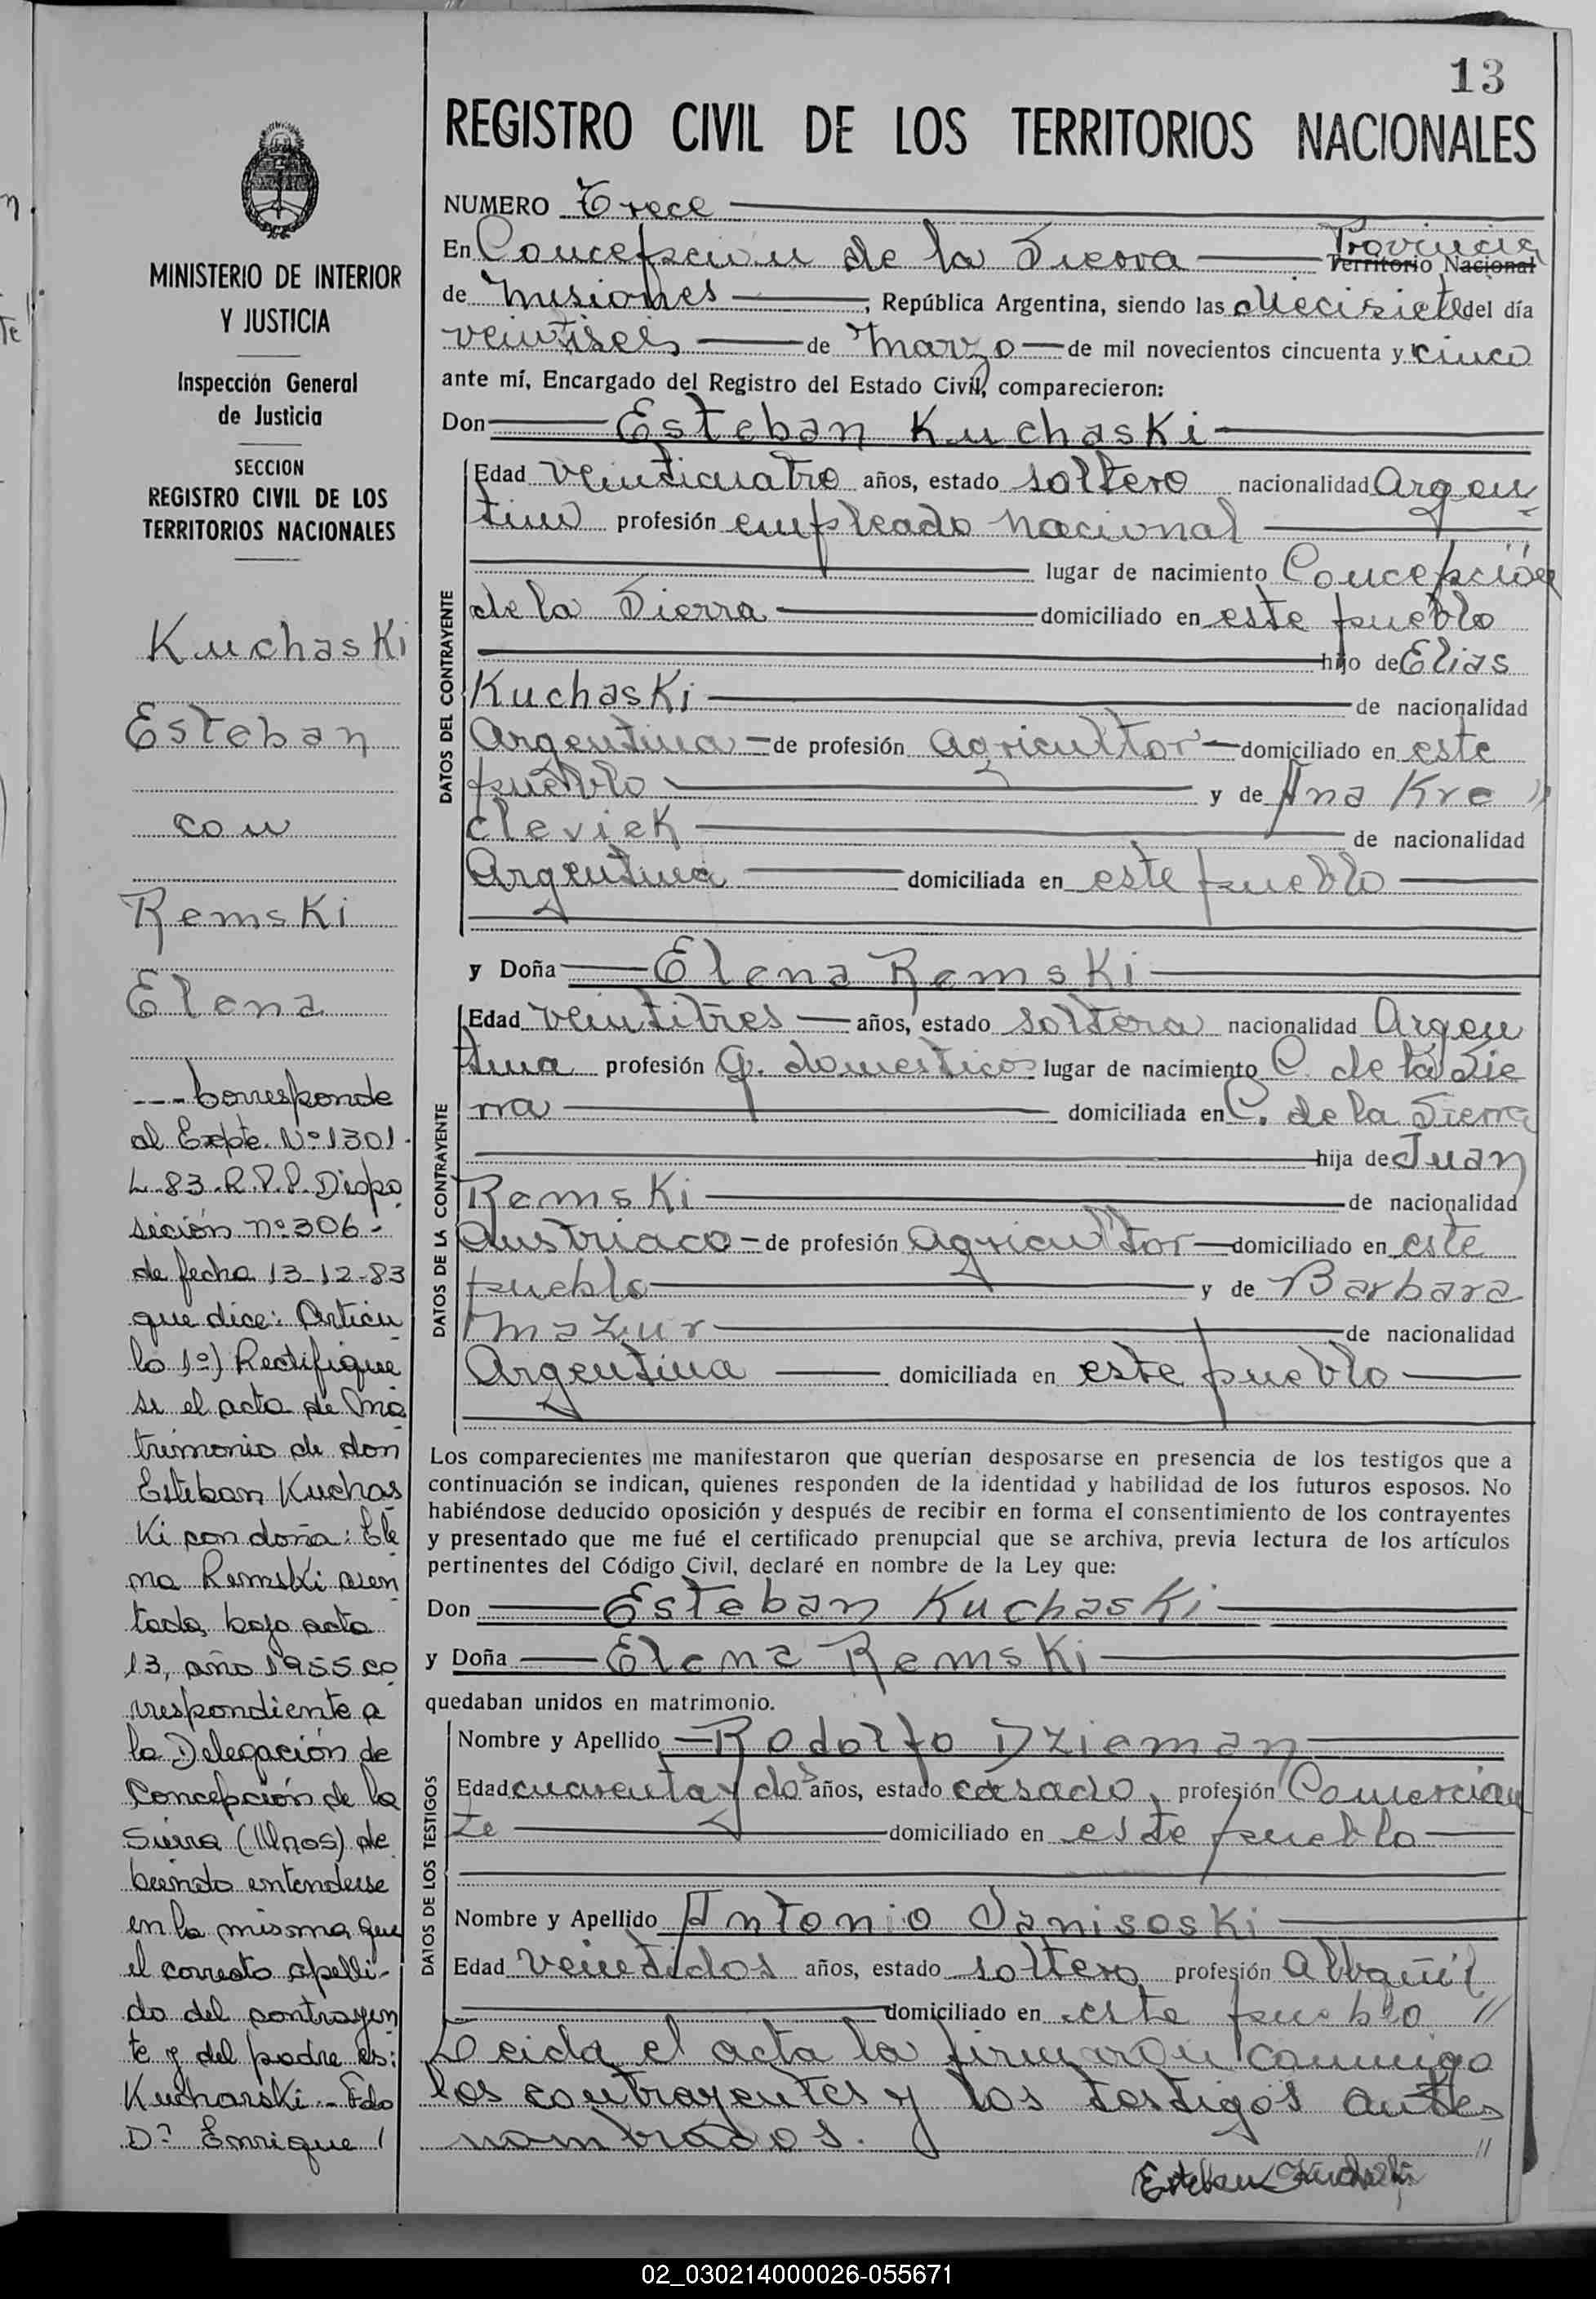 13
REGISTRO CIVIL DE LOS TERRITORIOS NACIONALES
MINISTERIO DE INTERIOR
Y JUSTICIA
Inspección General
de Justicia
SECCION
REGISTRO CIVIL DE LOS
TERRITORIOS NACIONALES
Kuchaski
Esteban
con
Remski
Elena
--- Corresponde
al Expte. Nº 1301-
L-83-R.P.P. Dispo
sición nº 306-
de fecha 13-12-83
que dice: Artícu
lo 1º) Rectifique
se el acta de Ma
trimonio de don
Esteban Kuchas
ki con doña: Ele
na Remski asen
tada bajo acta
13, año 1955 co
rrespondiente a
la Delegación de
Concepción de la
Sierra (Mnes) de
biendo entenderse
en la misma que
el correcto apelli-
do del contrayen
te y del padre es:
Kucharski.- Fdo
Dº Enrique /
NUMERO Trece
En Concepcion de la Sierra Provincia
Territorio Nacional
de Misiones, República Argentina, siendo las diecisiete del día
veintiseis de Marzo de mil novecientos cincuenta y cinco
ante mí, Encargado del Registro del Estado Civil, comparecieron:
Don Esteban Kuchaski
DATOS DEL CONTRAYENTE
Edad veinticuatro años, estado soltero nacionalidad Argen
tino profesión empleado nacional
lugar de nacimiento Concepción
de la Sierra domiciliado en este pueblo
hijo de Elias
Kuchaski de nacionalidad
Argentina de profesión agricultor domiciliado en este
pueblo y de Ana Kre //
cleviek de nacionalidad
Argentina domiciliada en este pueblo
y Doña Elena Remski
DATOS DE LA CONTRAYENTE
Edad veintitres años, estado soltera nacionalidad Argen
tina profesión q. domesticos lugar de nacimiento C. de la Sie
rra domiciliada en C. de la Sierra
hija de Juan
Remski de nacionalidad
austriaco de profesión agricultor domiciliado en este
pueblo y de Barbara
Mazur de nacionalidad
Argentina domiciliada en este pueblo
Los comparecientes me manifestaron que querían desposarse en presencia de los testigos que a
continuación se indican, quienes responden de la identidad y habilidad de los futuros esposos. No
habiéndose deducido oposición y después de recibir en forma el consentimiento de los contrayentes
y presentado que me fué el certificado prenupcial que se archiva, previa lectura de los artículos
pertinentes del Código Civil, declaré en nombre de la Ley que:
Don Esteban Kuchaski
y Doña Elena Remski
quedaban unidos en matrimonio.
DATOS DE LOS TESTIGOS
Nombre y Apellido Rodolfo Dzieman
Edad cuarenta y dos años, estado casado profesión Comercian
te domiciliado en este pueblo
Nombre y Apellido Antonio Janisoski
Edad veintidos años, estado soltero profesión albañil
domiciliado en este pueblo //
Leida el acta la firmaron conmigo
los contrayentes y los testigos antes
nombrados. //
Esteban Kuchaski
02_030214000026-055671